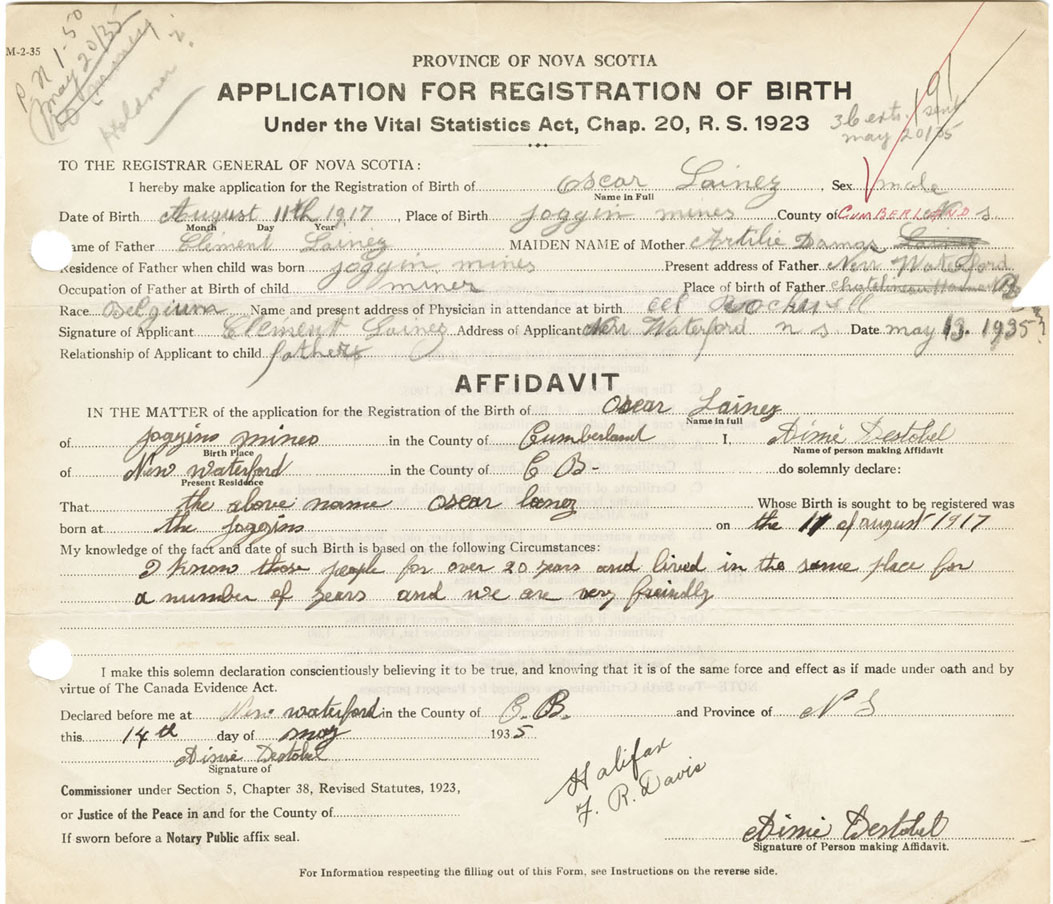 M-2-35
P. N 1-50
May 20/35
PROVINCE OF NOVA SCOTIA
APPLICATION FOR REGISTRATION OF BIRTH
Under the Vital Statistics Act, Chap. 20, R. S. 1923
3 Certs. sent
may 20/35
TO THE REGISTRAR GENERAL OF NOVA SCOTIA:
I hereby make application for the Registration of Birth of Oscar Lainez, Sex male
Name in Full
Date of Birth August 11th 1917, Place of Birth Joggin mines County of CUMBERLAND N S
Month Day Year
Name of Father Climent Lainez MAIDEN NAME of Mother Artilie Damas Lainez
Residence of Father when child was born Joggin mines Present address of Father New Waterford
Occupation of Father at Birth of child miner Place of birth of Father
Race Belgium Name and present address of Physician in attendance at birth Rockwell
Signature of Applicant Clement Lainez Address of Applicant New Waterford n s Date may 13. 1935
Relationship of Applicant to child fathers
AFFIDAVIT
IN THE MATTER of the application for the Registration of the Birth of Oscar Lainez
Name in full
of Joggins mines in the County of Cumberland I, Aimé Destobel
Birth Place Name of person making Affidavit
of New Waterford in the County of C B- do solemnly declare:
Present Residence
That the above name oscar lanez Whose Birth is sought to be registered was
born at the Joggins on the 11 of august 1917
My knowledge of the fact and date of such Birth is based on the following Circumstances:
I know those people for over 20 years and lived in the same place for
a number of years and we are very freindly
I make this solemn declaration conscientiously believing it to be true, and knowing that it is of the same force and effect as if made under oath and by
virtue of The Canada Evidence Act.
Declared before me at New waterford in the County of C. B. and Province of N S
this 14th day of may 1935
Aimé Destobel
Signature of
Halifax
F. R. Davis
Commissioner under Section 5, Chapter 38, Revised Statutes, 1923,
or Justice of the Peace in and for the County of
If sworn before a Notary Public affix seal.
Aimé Destobel
Signature of Person making Affidavit.
For Information respecting the filling out of this Form, see Instructions on the reverse side.